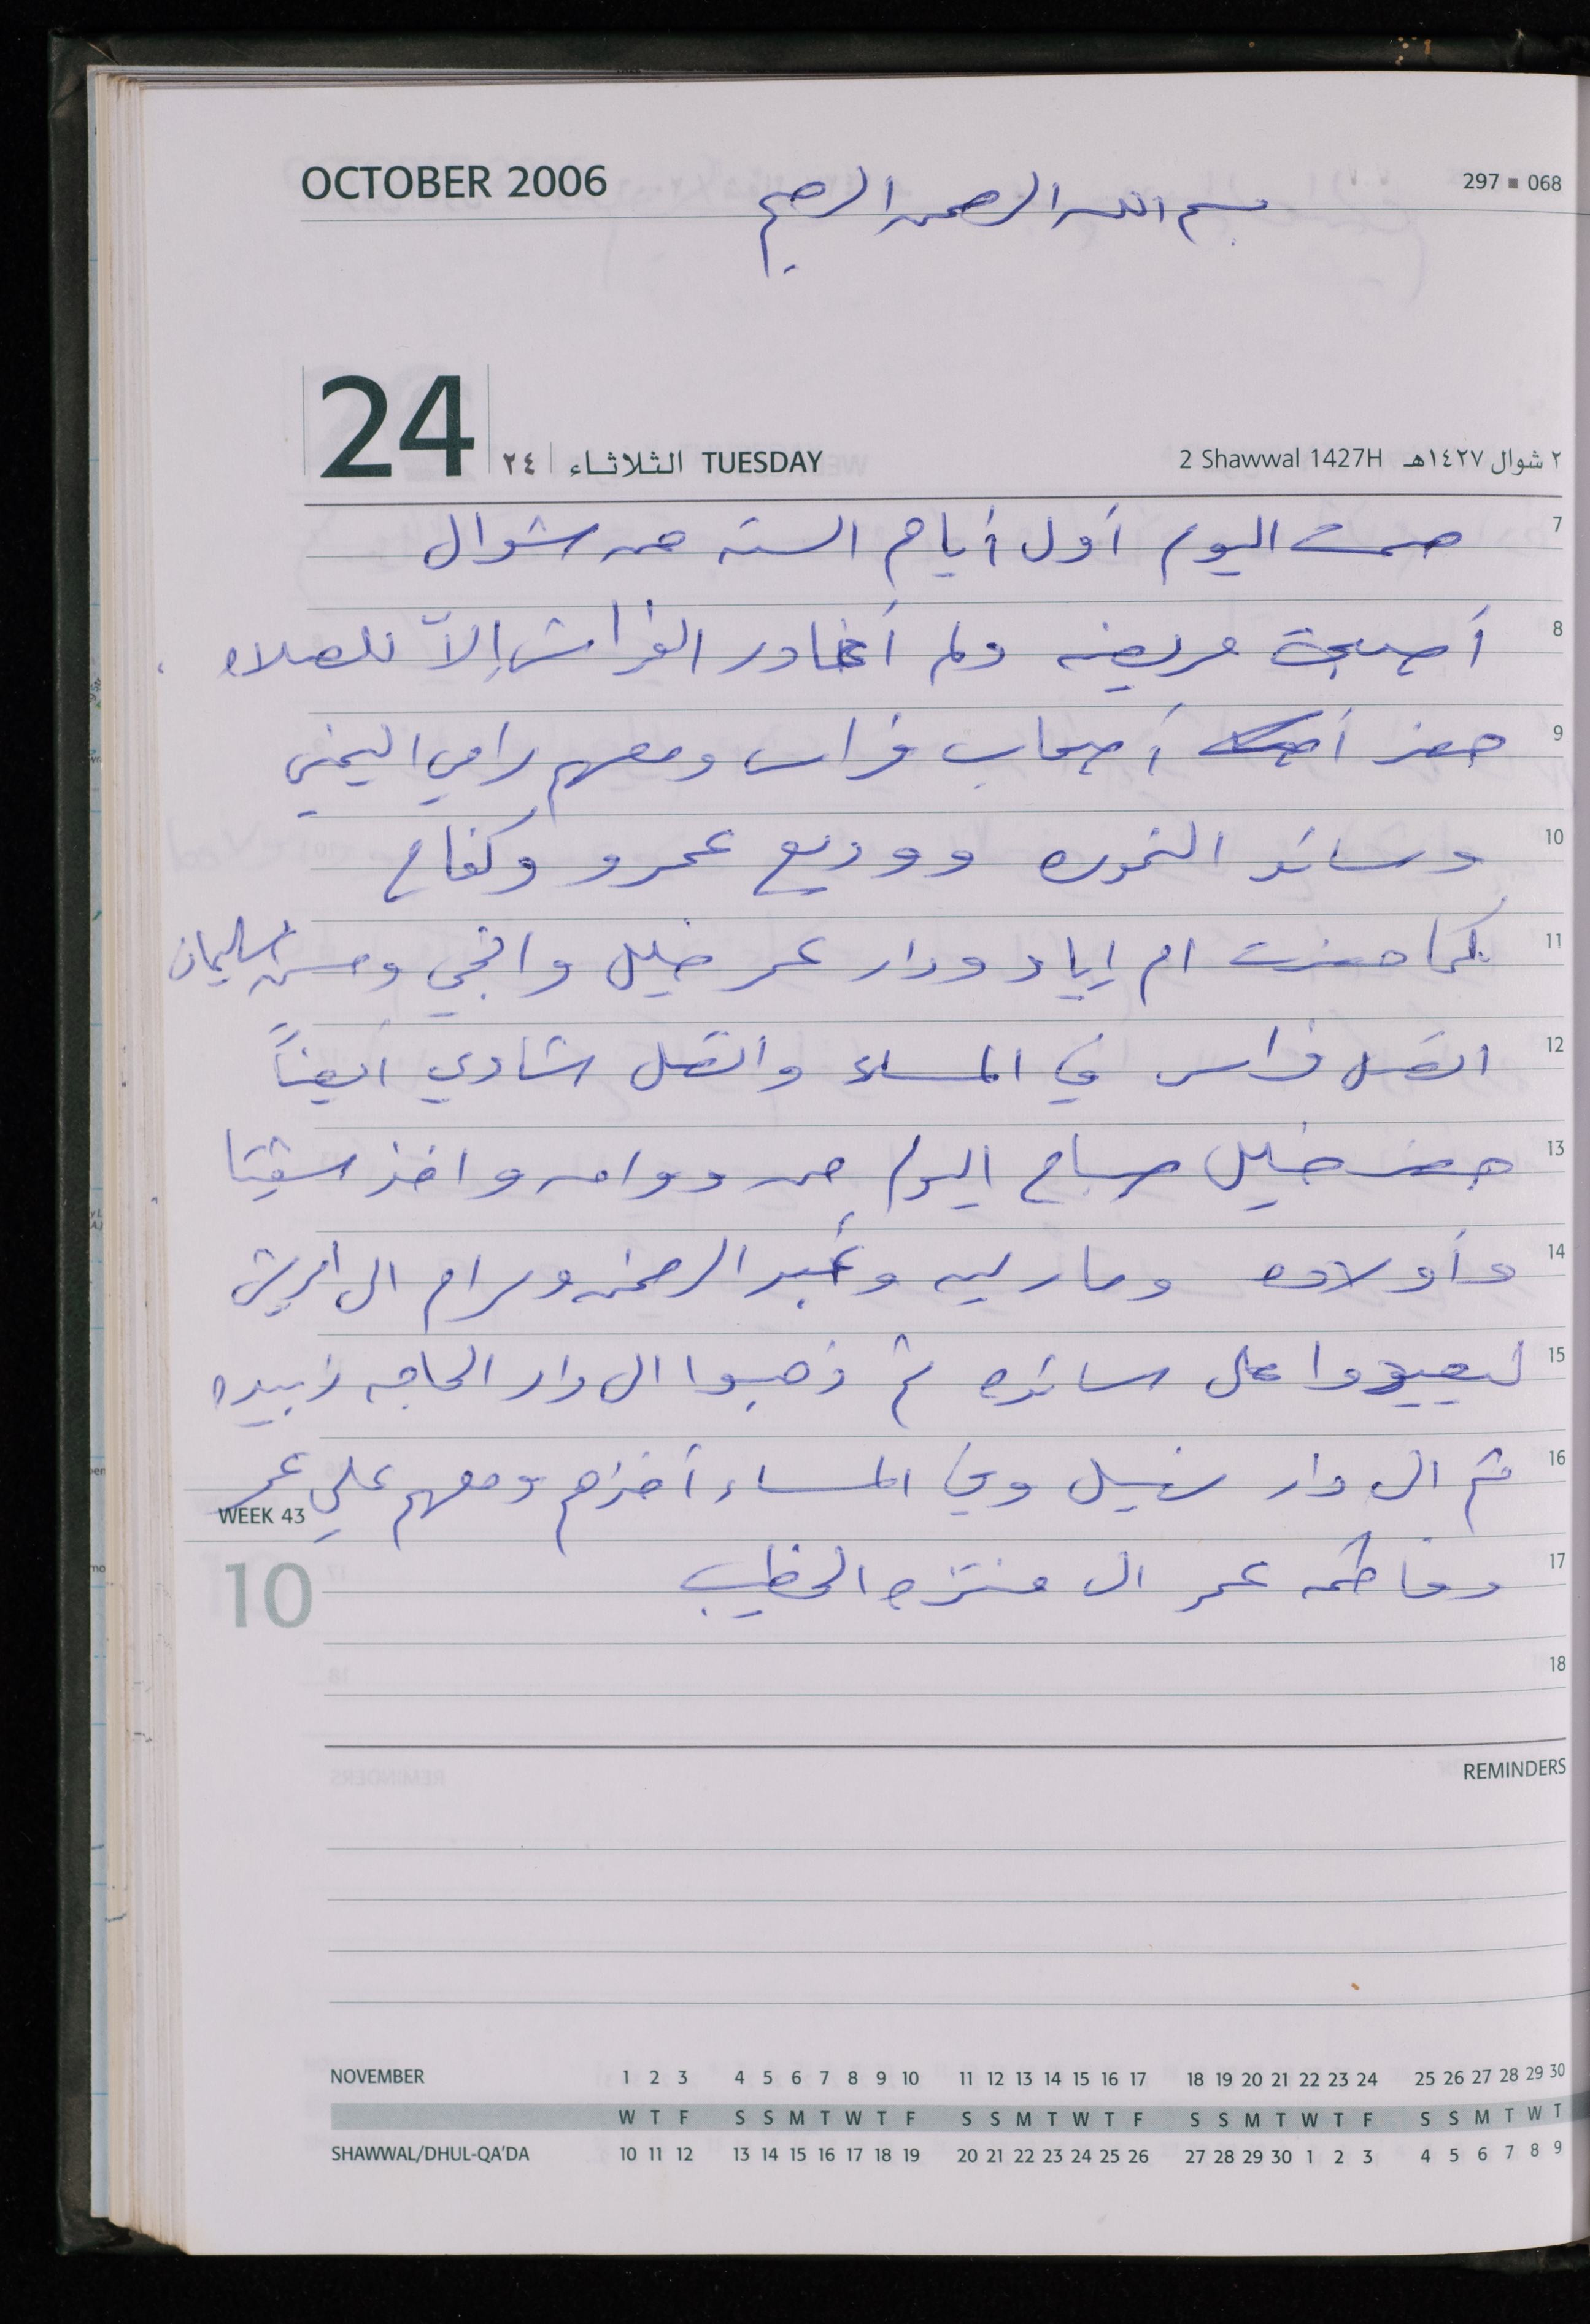 OCTOBER 2006
297 ■ 068
بسم الله الرحمن الرحيم
24
٢٤ الثلاثاء TUESDAY
2 Shawwal 1427H ٢ شوال ١٤٢٧هـ
7 صمت اليوم أول أيام الستة من شوال
8 أصبحت مريضه ولم أغادر الفراش إلّا للصلاه
9 حضر أصحاب فراس ومعهم رامي اليمني
10 وسائد النموره ووديع عمرو وكفاح
11 كما حضرت ام إياد ودار عمر خليل وافجي وحسن سليمان
12 اتصل فراس في المساء واتصل شادي أيضاً
13 حضر خليل صباح اليوم من دوامه واخذ شقيتا
14 وأولاده وماريه وعبد الرحمن ومرام الى امريش
15 ليعيدوا على سائده ثم ذهبوا الى دار الحاجه زبيده
16 ثم الى دار نبيل وفي المساء أخذهم ومعهم علي عمر
WEEK 43
17 وفاطمه عمر الى منتزه الخطيب
10
18
REMINDERS
NOVEMBER 1 2 3 4 5 6 7 8 9 10 11 12 13 14 15 16 17 18 19 20 21 22 23 24 25 26 27 28 29 30
W T F S S M T W T F S S M T W T F S S M T W T F S S M T W T
SHAWWAL/DHUL-QA'DA 10 11 12 13 14 15 16 17 18 19 20 21 22 23 24 25 26 27 28 29 30 1 2 3 4 5 6 7 8 9